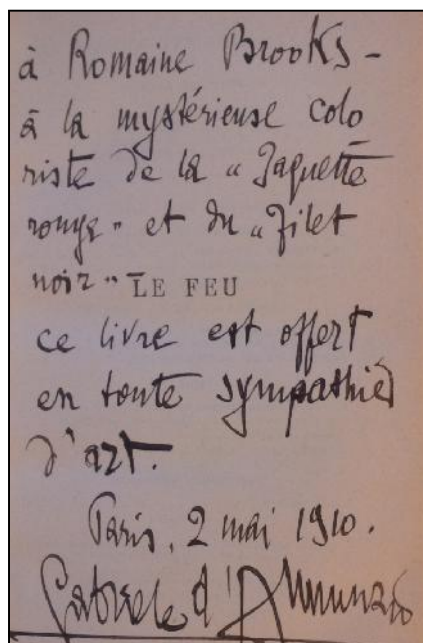 à Romaine Brooks -
à la mystérieuse colo
riste de la "Jaquette
rouge" et du "Filet
noir" -
LE FEU
ce livre est offert
en toute sympathie
d'art.
Paris, 2 mai 1910.
Gabriele d'Annunzio